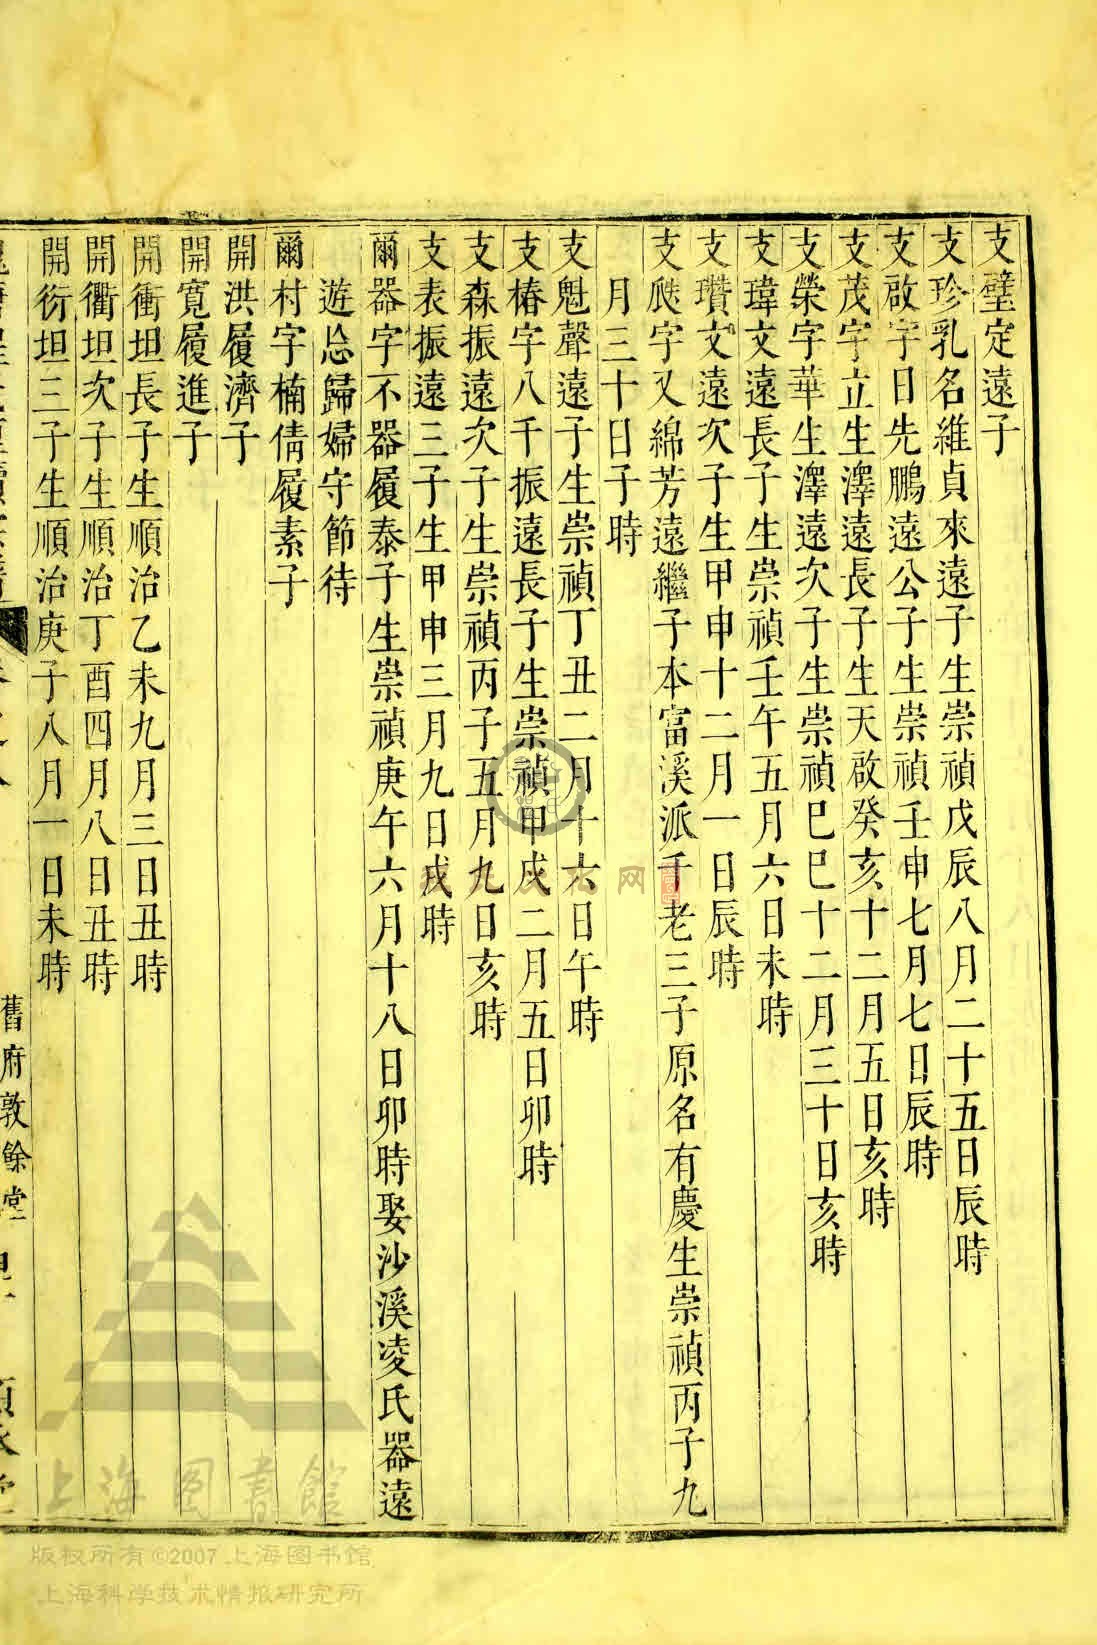 支璧定遠子
支珍乳名維貞來遠子生崇禎戊辰八月二十五日辰時
支啟字日先鵬遠公子生崇禎壬申七月七日辰時
支茂字立生澤遠長子生天啟癸亥十二月五日亥時
支榮字華生澤遠次子生崇禎巳巳十二月三十日亥時
支瑋文遠長子生崇禎壬午五月六日未時
支瓚文遠次子生甲申十二月一日辰時
支瓞字又綿芳遠繼子本富溪派千老三子原名有慶生崇禎丙子九
月三十日子時
支魁聲遠子生崇禎丁丑二月十六日午時
支椿字八千振遠長子生崇禎甲戌二月五日卯時
支森振遠次子生崇禎丙子五月九日亥時
支表振遠三子生甲申三月九日戌時
爾器字不器履泰子生崇禎庚午六月十八日卯時娶沙溪凌氏器遠
遊忘歸婦守節待
爾村字楠倩履素子
開洪履濟子
開寬履進子
開衝坦長子生順治乙未九月三日丑時
開衢坦次子生順治丁酉四月八日丑時
開衍坦三子生順治庚子八月一日未時
舊府敦餘堂
上海图书館
版权所有©2007上海图书馆
上海科学技术情报研究所